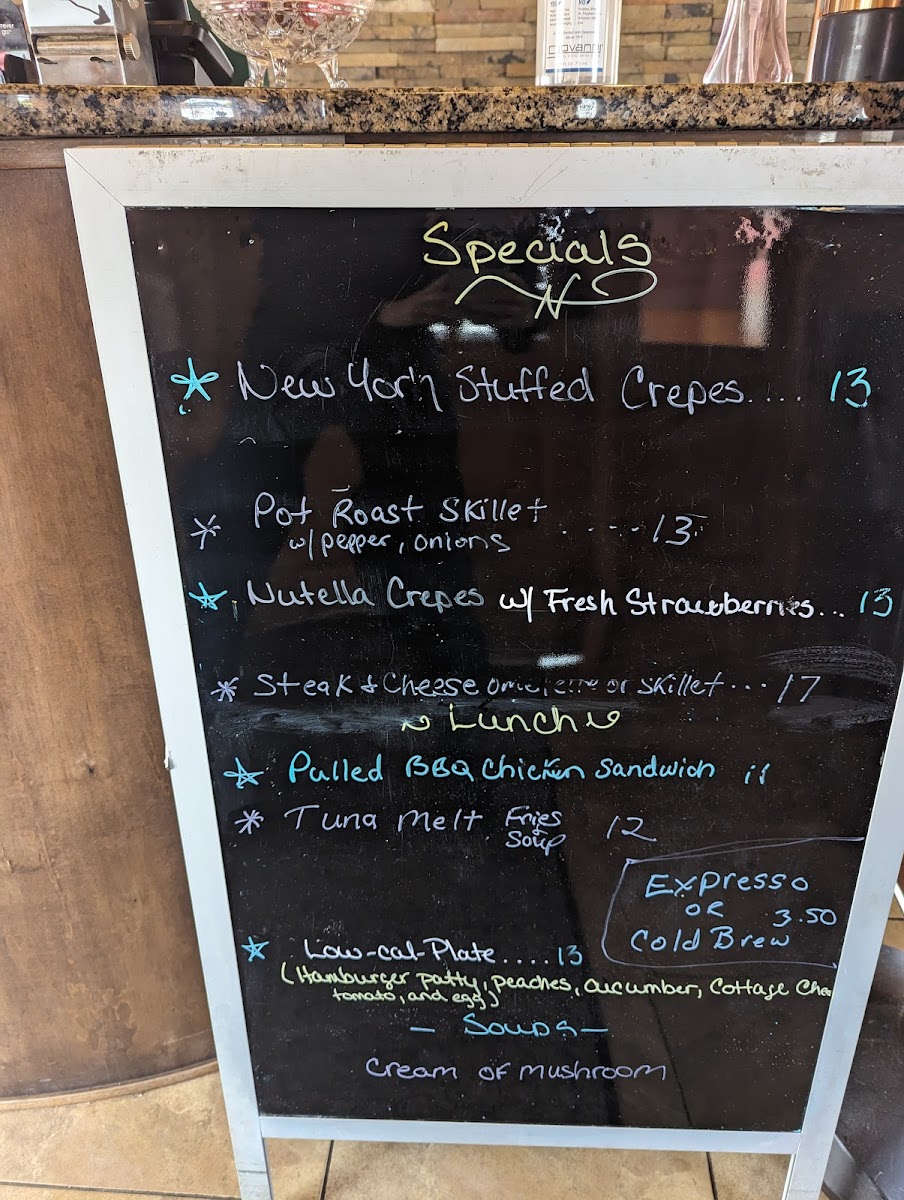 Specials
N
New Yor'n Stuffed Crepes.... 13
Pot Roast Skillet ..... 13
w/ pepper, onions
Nutella Crepes w/ Fresh Strawberries... 13
Steak & Cheese omelette or skillet... 17
Lunch
Pulled BBQ Chicken Sandwich 11
Tuna Melt Fries 12
Soup
Expresso
OR 3.50
Cold Brew
Low-cal-Plate..... 13
(Hamburger patty, peaches, cucumber, Cottage Chee
tomato, and egg)
- Soups -
Cream of mushroom